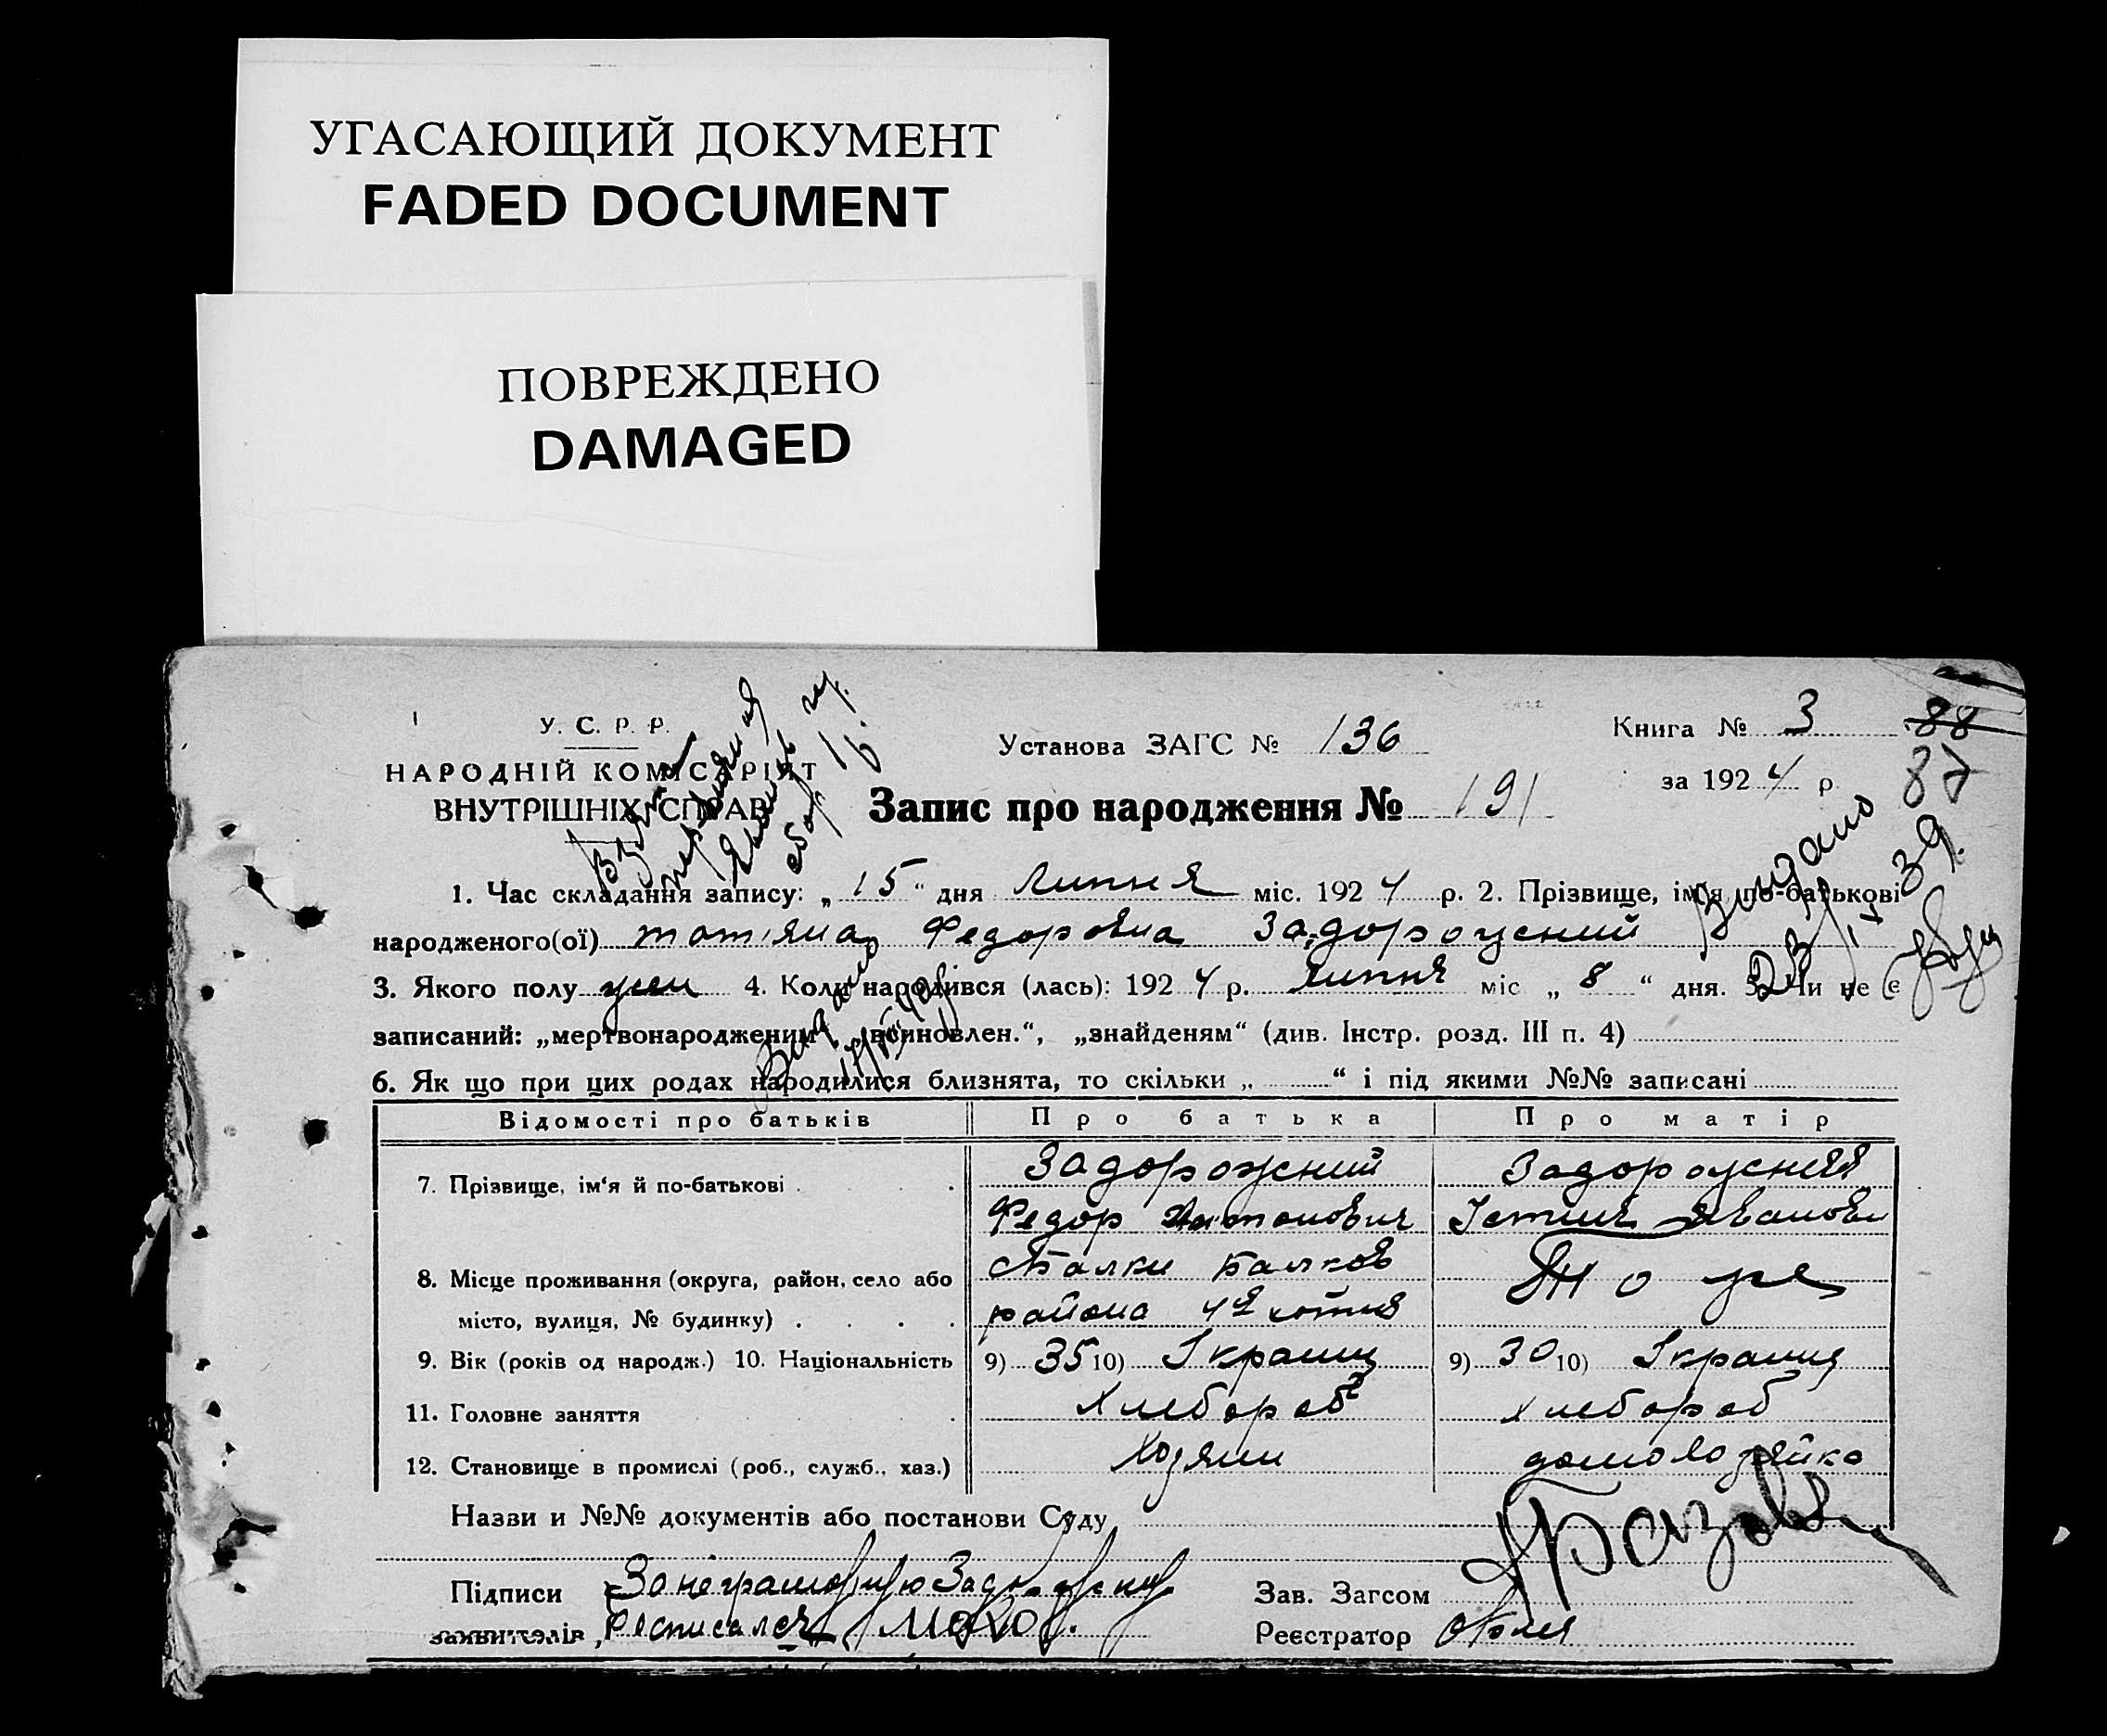 УГАСАЮЩИЙ ДОКУМЕНТ
FADED DOCUMENT
ПОВРЕЖДЕНО
DAMAGED
У. С. Р. Р.
НАРОДНІЙ КОМІСАРІЯТ
ВНУТРІШНІХ СПРАВ
Установа ЗАГС № 136
Книга № 3
88
87
за 1924 р.
Запис про народження № 191
1. Час складання запису: „15“ дня Липня міс. 1924 р. 2. Прізвище, ім'я по-батькові
народженого(ої) татіяна Федоровна Задорожний
3. Якого полу жен 4. Коли народився (лась): 1924 р. липня міс „8“ дня. 5. Чи не є
записаний: „мертвонародженим“, „всиновлен.“, „знайденям“ (див. Інстр. розд. III п. 4)
6. Як що при цих родах народилися близнята, то скільки „ “ і під якими №№ записані
Видано
39.
Відомості про батьків Про батька Про матір
7. Прізвище, ім'я й по-батькові Задорожний Задорожная
Федор Антонович
8. Місце проживання (округа, район, село або Балки Балков
місто, вулиця, № будинку) района 4я сотня
То же
9. Вік (років од народж.) 10. Національність 9) 35 10) Украинц 9) 30 10) Украинц
11. Головне заняття хлебороб хлебороб
12. Становище в промислі (роб., служб., хаз.) хозяин домохозяйка
Назви и №№ документів або постанови Суду
Підписи За неграмотную
Зав. Загсом
заявителів росписался
Реєстратор